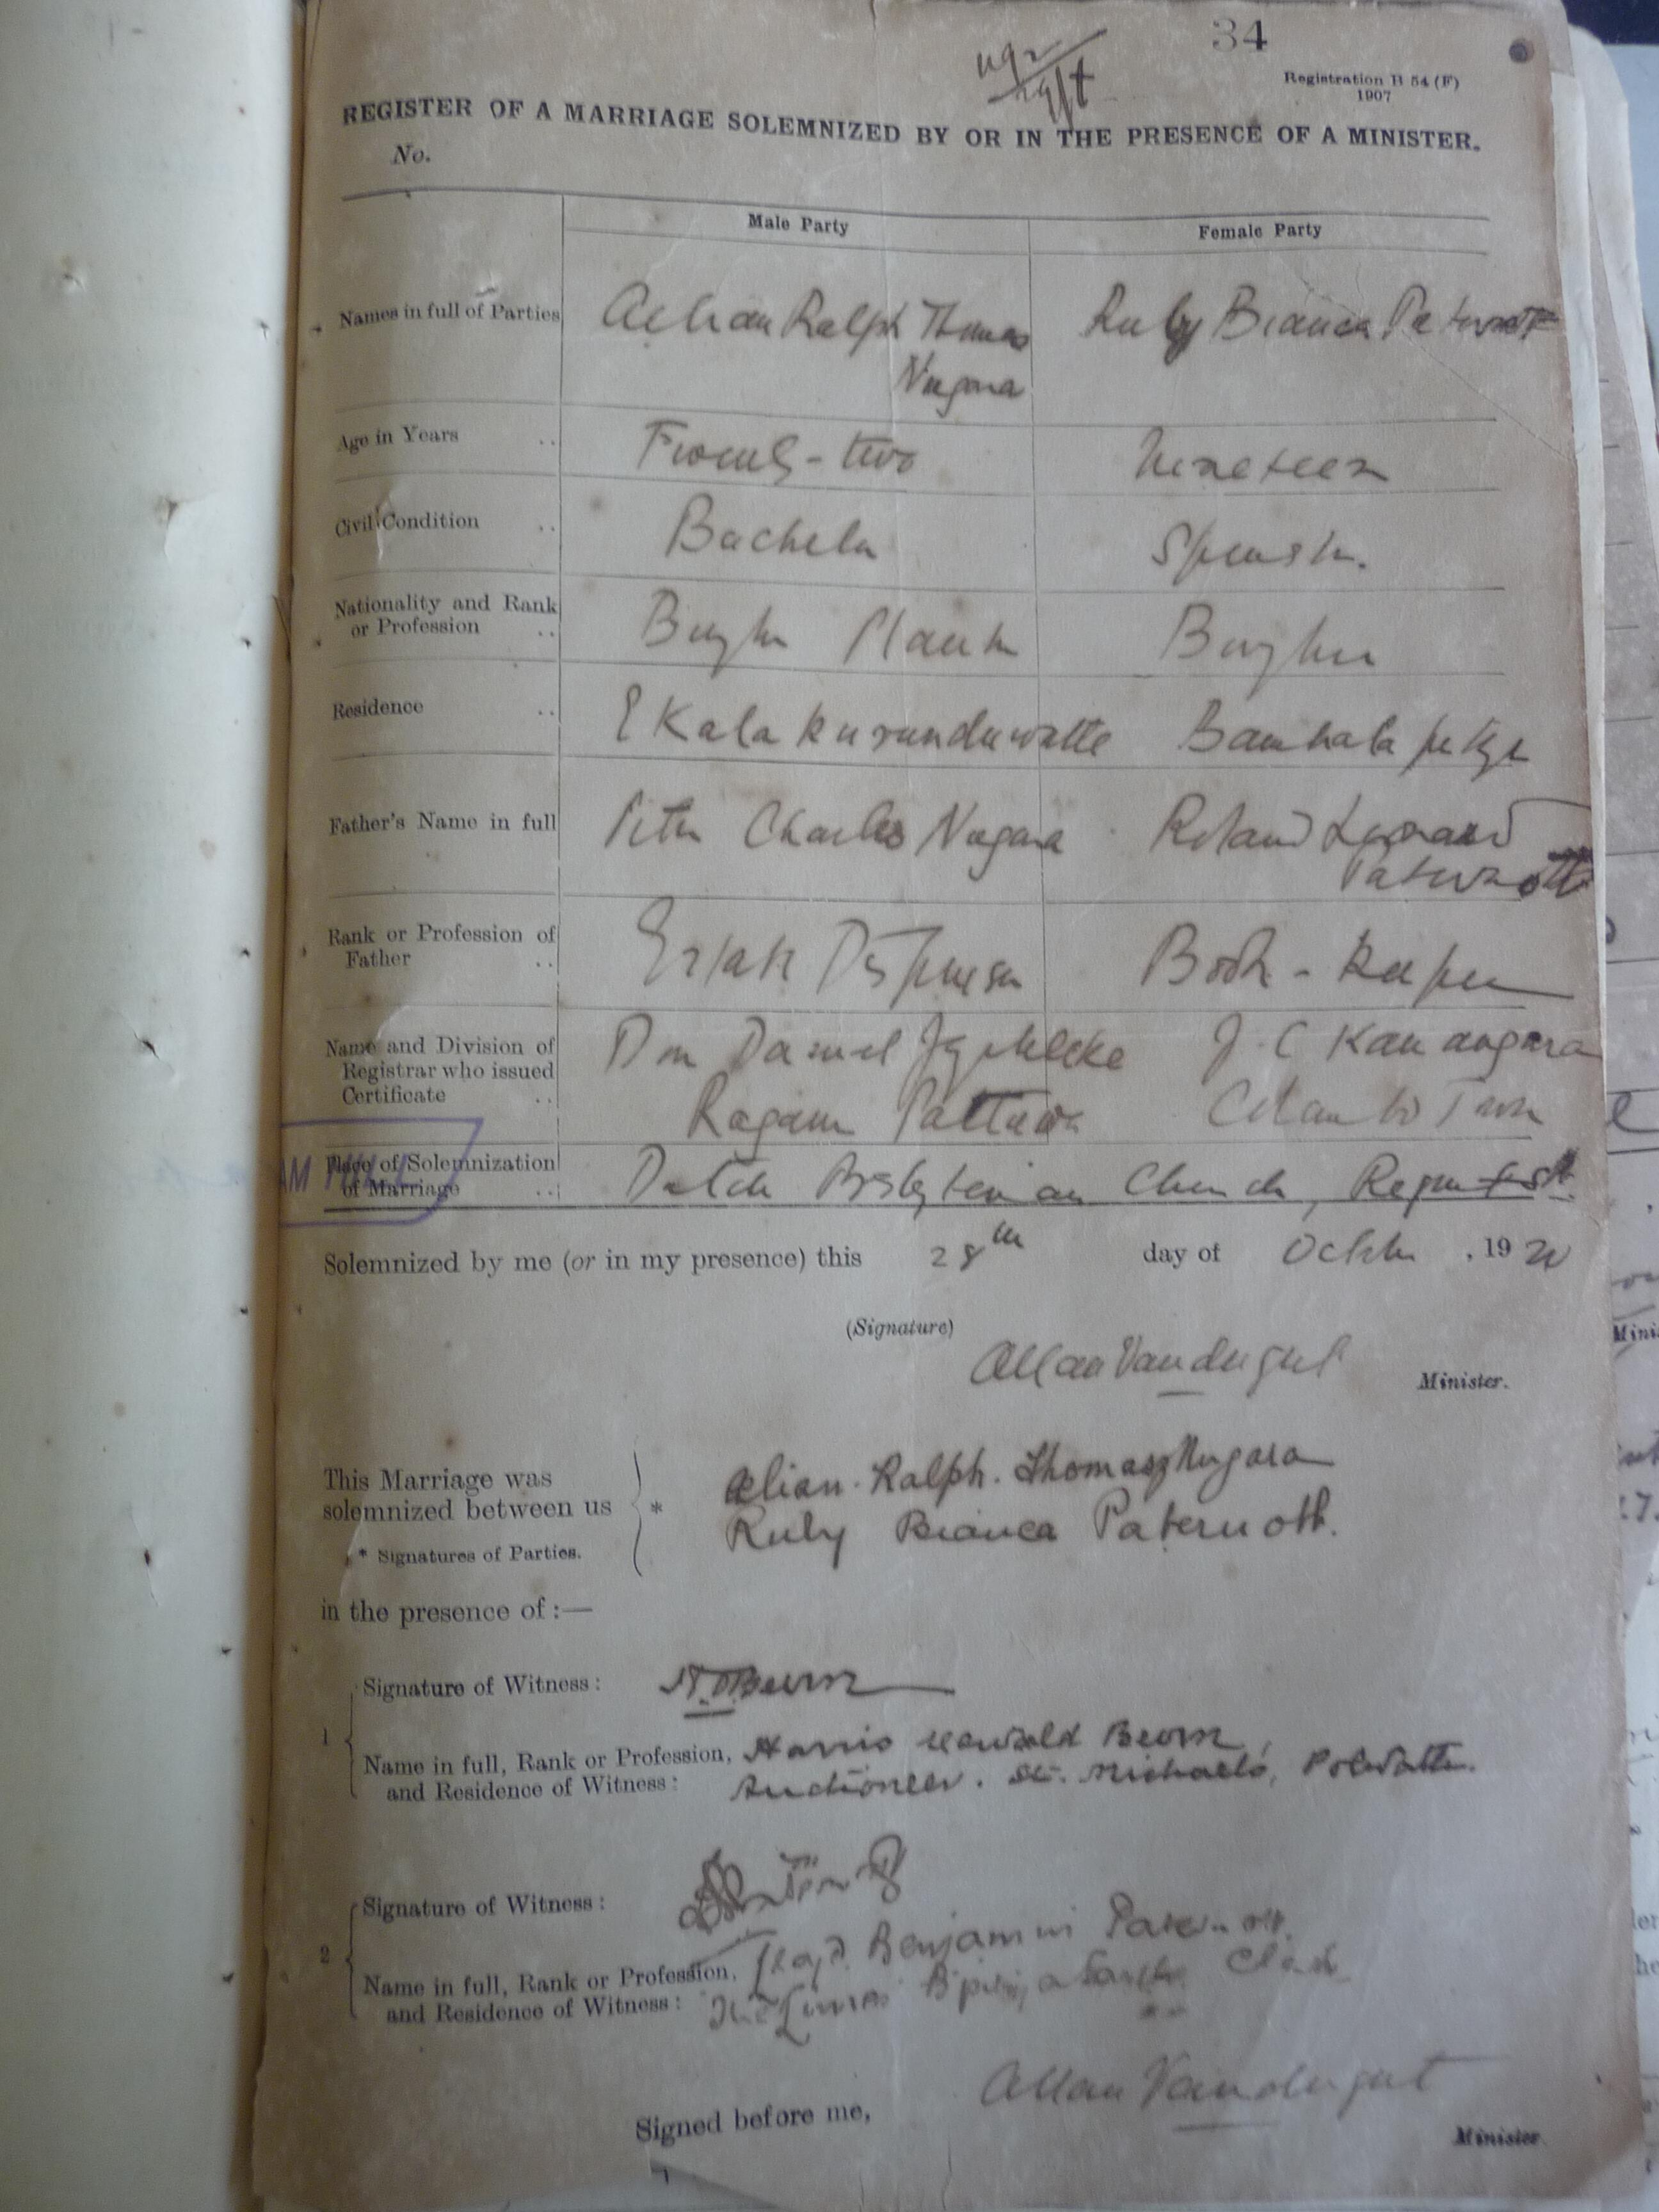 34
Registration B 54 (F)
1907
REGISTER OF A MARRIAGE SOLEMNIZED BY OR IN THE PRESENCE OF A MINISTER.
No.
Male Party Female Party
Names in full of Parties Aelian Ralph Thomas Ruby Bianca Paternott
Nugara
Age in Years .. Twenty-two Nineteen
Civil Condition .. Bachelor Spinster.
Nationality and Rank
or Profession .. Burgher Planter Burgher
Residence .. Ekala Kurunduwatte Bambalapitiya
Father's Name in full Peter Charles Nugara Roland Leonard
Paternott
Rank or Profession of
Father .. Estate Dispenser Book-Keeper
Name and Division of Don Daniel J. C Kannangara
Registrar who issued
Certificate .. Ragam Pattuwa Colombo Town
Place of Solemnization
of Marriage .. Dutch Presbyterian Church, Regent St.
AM HILL
Solemnized by me (or in my presence) this 28th day of October, 1920
(Signature)
Allan Vandergert
Minister.
This Marriage was
solemnized between us * Aelian. Ralph. Thomasz Nugara
Ruby Bianca Paternott.
* Signatures of Parties.
in the presence of :—
Signature of Witness :
1
Name in full, Rank or Profession, Harris Beven,
and Residence of Witness : Auctioneer. St. Michaels, Polwatte.
Signature of Witness :
2
Name in full, Rank or Profession, Benjamin Paternott.
and Residence of Witness : Clerk
Signed before me, Allan Vandergert
Minister.